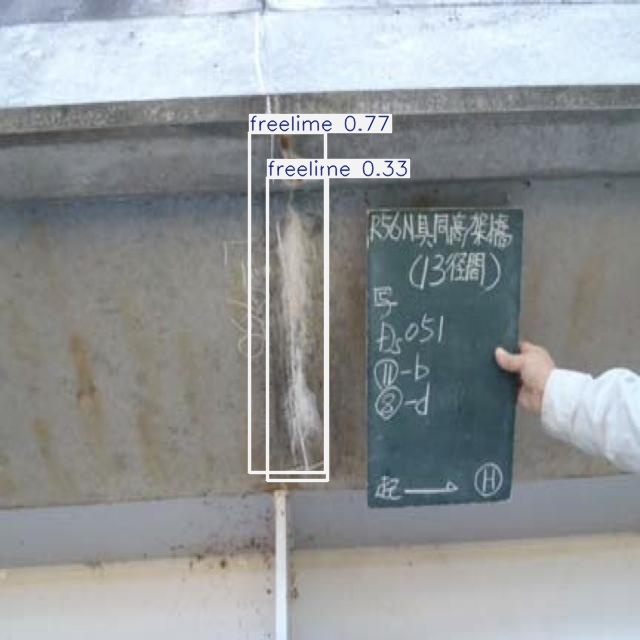 freelime 0.77
freelime 0.33
R56N具同高架橋
(13径間)
写
051
⑪-b
⑧-d
起→ Ⓗ